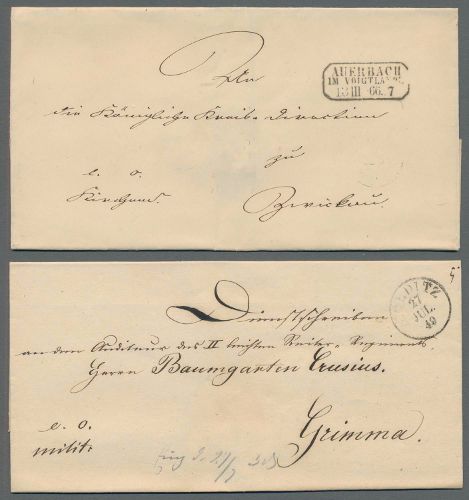 An
AUERBACH
IM VOIGTLANDE
13 III 66. 7
die Königliche Kreis-Direction
zu
e. o.
Kirchens.
Zwickau.
Dienstschreiben
27
JUL.
49
an den Auditeur des II leichten Reiter-Regiments
Herrn Baumgarten Crusius.
e. o.
milit:
Grimma.